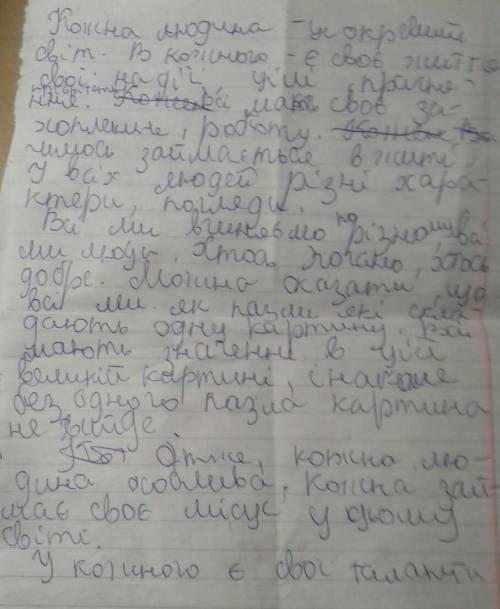 Кожна людина - це окремий
світ. В кожного - є своє життя
свої надії цілі, прагне-
ння. Всі мають своє за-
хоплення, роботу.
чимось займається в житті,
У всіх людей різні хара-
ктери, погляди.
Всі ми вчиняємо по різному, всі
ми люди. Хтось погано, хтось
добре. Можна сказати, що
всі ми як пазли які скла-
дають одну картину. Всі
мають значення в цій
великій картині, інакше
без одного пазла картина
не вийде.
Отже, кожна лю-
дина особлива, кожна зай-
має своє місце у цьому
світі.
У кожного є свої таланти